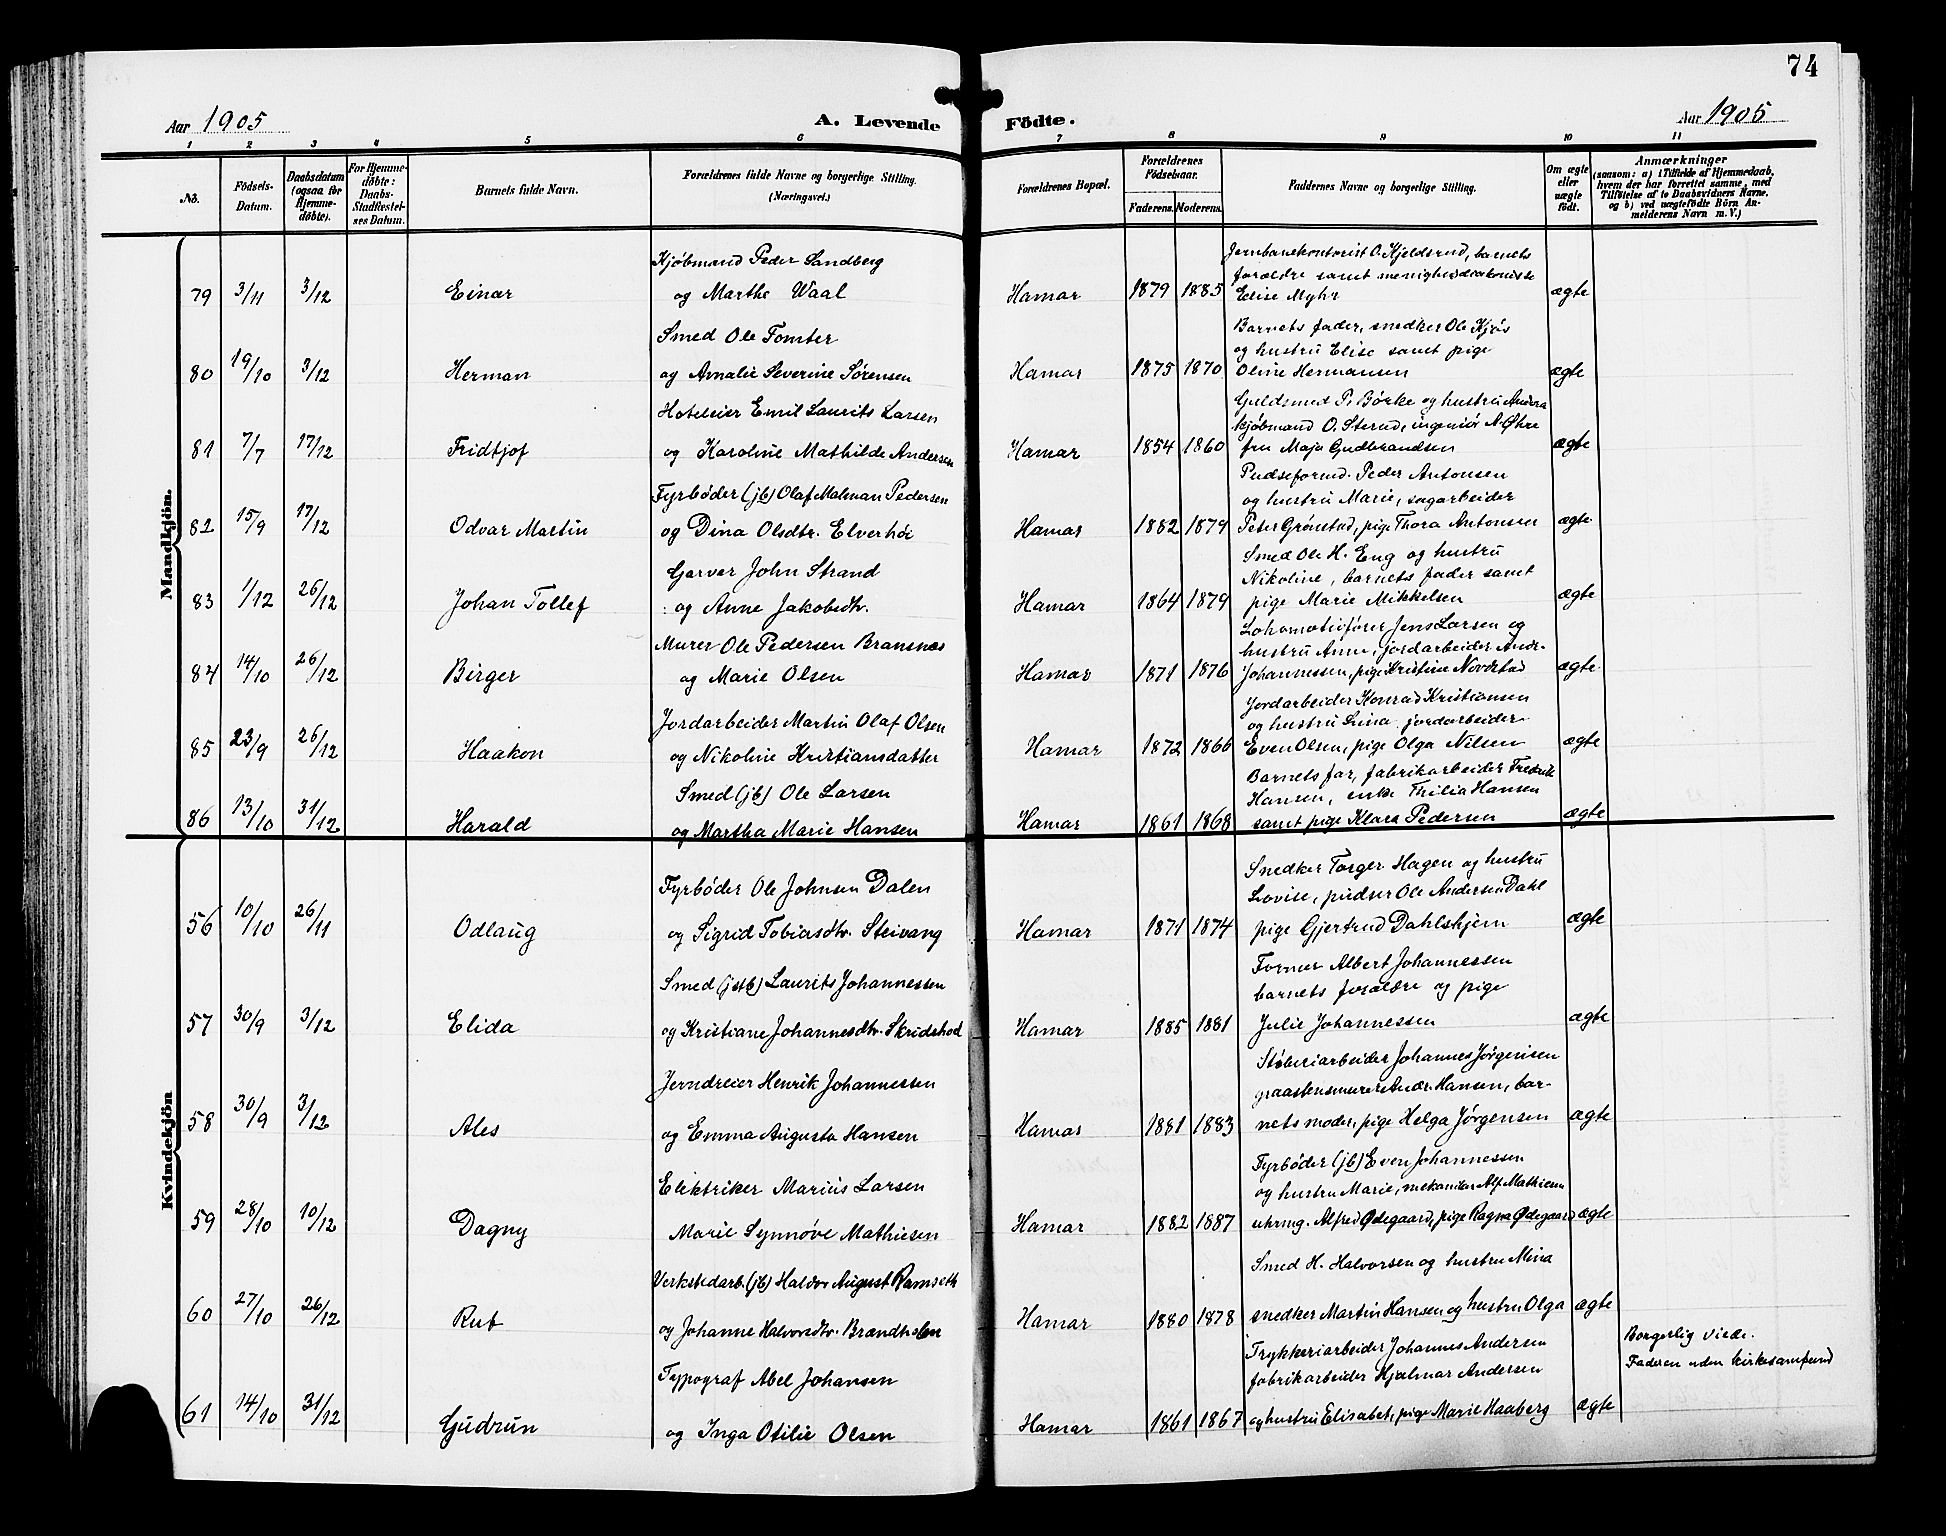 74
Aar 1905
A. Levende Födte.
Aar 1905
1 2 3 4 5 6 7 8 9 10 11
No.
Födsels-Datum.
Daabsdatum (ogsaa för Hjemme-döbte).
For Hjemme-döbte: Daabs-Stadfæstel-ses Datum.
Barnets fulde Navn.
Forældrenes fulde Navne og borgerlige Stilling.
(Næringsvei.)
Forældrenes Bopæl.
Forældrenes Födselsaar.
Faderens. Moderens.
Faddernes Navne og borgerlige Stilling.
Om ægte eller uægte födt.
Anmærkninger
(saasom: a) i Tilfælde af Hjemmedaab, hvem der har forrettet samme, med Tilföielse af to Daabsvidners Navne, og b) ved uægtefödte Börn An-melderens Navn m. V.)
Mandkjön.
Kjøbmand Peder Sandberg
Jernbanekontorist O. Kjeldsrud, barnets
forældre samt menighedsdiakonisse
79 3/11 3/12 Einar og Marthe Waal Hamar 1879 1885 Elise Myhr ægte
Smed Ole Tomter
Barnets fader, snedker Ole Kjøs
og hustru Elise samt pige
80 19/10 3/12 Herman og Amalie Severine Sørensen Hamar 1875 1870 Oline Hermansen ægte
Hoteleier Emil Laurits Larsen
Guldsmed P. Børke og hustru Andrea
kjøbmand O. Sterud, ingeniør N. Øhre
81 7/7 17/12 Fridtjof og Karoline Mathilde Andersen Hamar 1854 1860 fru Maja Gudbrandsen ægte
Fyrbøder (jb) Olaf Malman Pedersen
Pudseformd. Peder Antonsen
og hustru Marie, sagarbeider
82 15/9 17/12 Odvar Martin og Dina Olsdtr. Elverhøi Hamar 1882 1879 Peter Grønstad, pige Thora Antonsen ægte
Garver John Strand
Smed Ole H. Eng og hustru
Nikoline, barnets fader samt
83 1/12 26/12 Johan Tollef og Anne Jakobsdtr. Hamar 1864 1879 pige Marie Mikkelsen ægte
Murer Ole Pedersen Bransnæs
Lokomotivfører Jens Larsen og
hustru Anne, jordarbeider Andr.
84 14/10 26/12 Birger og Marie Olsen Hamar 1871 1876 Johannessen, pige Kristine Nordstad ægte
Jordarbeider Martin Olaf Olsen
Jordarbeider Konrad Kristiansen
og hustru Lina, jordarbeider
85 23/9 26/12 Haakon og Nikoline Kristiansdatter Hamar 1872 1866 Even Olsen, pige Olga Nilsen ægte
Smed (jb) Ole Larsen
Barnets far, fabrikarbeider Fredrik
Hansen, enke Thilia Hansen
86 13/10 31/12 Harald og Martha Marie Hansen Hamar 1861 1868 samt pige Klara Pedersen ægte
Kvindekjön
Fyrbøder Ole Johnsen Dalen
Snedker Torger Hagen og hustru
Lovise, pudser Ole Andersen Dahl
56 10/10 26/11 Odlaug og Sigrid Tobiasdtr. Steivang Hamar 1871 1874 pige Gjertrud Dahlskjern ægte
Smed (jstb) Laurits Johannessen
Former Albert Johannessen
barnets forældre og pige
57 30/9 3/12 Elida og Kristiane Johannesdtr. Skridshod Hamar 1885 1881 Julie Johannessen ægte
Jerndreier Henrik Johannessen
Støberiarbeider Johannes Jørgensen
graastensmurer Andr. Hansen, bar-
58 30/9 3/12 Ales og Emma Augusta Hansen Hamar 1881 1883 nets moder, pige Helga Jørgensen ægte
Elektriker Marius Larsen
Fyrbøder (jb) Even Johannessen
og hustru Marie, mekaniker Alf Mathiesen
59 28/10 10/12 Dagny Marie Synnøve Mathiesen Hamar 1882 1887 uhrmg. Alfred Ødegaard, pige Ragna Ødegaard ægte
Verkstedarb. (jb) Haldor August Ramseth
Smed H. Halvorsen og hustru Mina
60 27/10 26/12 Rut og Johanne Halvorsdtr. Brændholen Hamar 1880 1878 snedker Martin Hansen og hustru Olga ægte
Typograf Abel Johansen
Trykkeriarbeider Johannes Andersen
fabrikarbeider Hjalmar Andersen
Borgerlig viede.
Faderen uden kirkesamfund
61 14/10 31/12 Gudrun og Inga Otilie Olsen Hamar 1861 1867 og hustru Elisabet, pige Marie Haaberg ægte